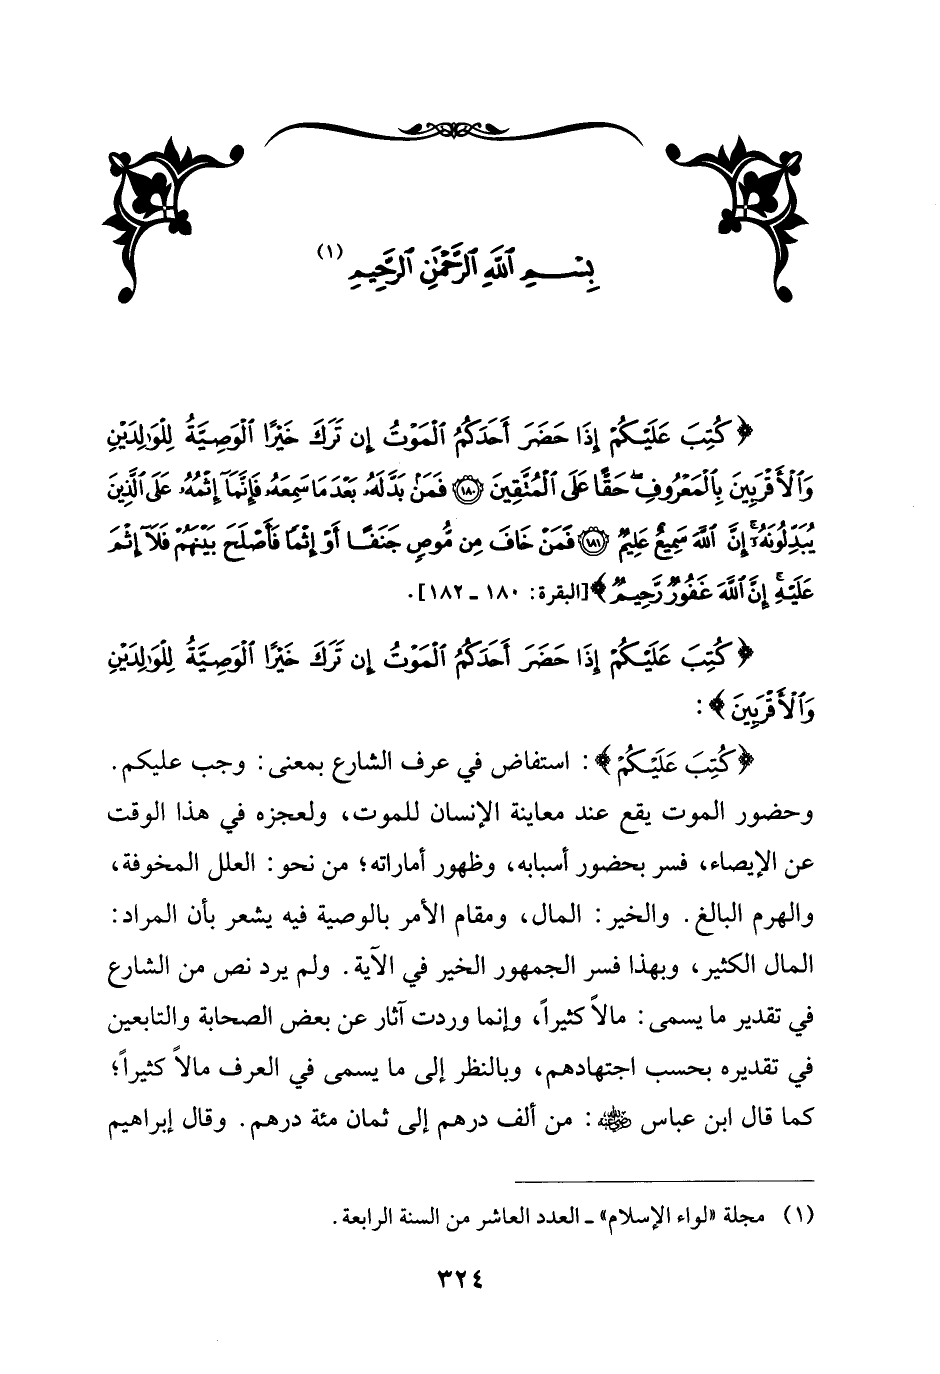 بِسْمِ اللَّهِ الرَّحْمَٰنِ الرَّحِيمِ (١)
﴿ كُتِبَ عَلَيْكُمْ إِذَا حَضَرَ أَحَدَكُمُ الْمَوْتُ إِن تَرَكَ خَيْرًا الْوَصِيَّةُ لِلْوَالِدَيْنِ
وَالْأَقْرَبِينَ بِالْمَعْرُوفِ ۖ حَقًّا عَلَى الْمُتَّقِينَ ﴿١٨٠﴾ فَمَنۢ بَدَّلَهُۥ بَعْدَ مَا سَمِعَهُۥ فَإِنَّمَآ إِثْمُهُۥ عَلَى الَّذِينَ
يُبَدِّلُونَهُۥٓ ۚ إِنَّ اللَّهَ سَمِيعٌ عَلِيمٌ ﴿١٨١﴾ فَمَنْ خَافَ مِن مُّوصٍ جَنَفًا أَوْ إِثْمًا فَأَصْلَحَ بَيْنَهُمْ فَلَآ إِثْمَ
عَلَيْهِ ۚ إِنَّ اللَّهَ غَفُورٌ رَّحِيمٌ ﴾ [البقرة: ١٨٠ ـ ١٨٢].
﴿ كُتِبَ عَلَيْكُمْ إِذَا حَضَرَ أَحَدَكُمُ الْمَوْتُ إِن تَرَكَ خَيْرًا الْوَصِيَّةُ لِلْوَالِدَيْنِ
وَالْأَقْرَبِينَ ﴾:
﴿ كُتِبَ عَلَيْكُمْ ﴾: استفاض في عرف الشارع بمعنى: وجب عليكم.
وحضور الموت يقع عند معاينة الإنسان للموت، ولعجزه في هذا الوقت
عن الإيصاء، فسر بحضور أسبابه، وظهور أماراته؛ من نحو: العلل المخوفة،
والهرم البالغ. والخير: المال، ومقام الأمر بالوصية فيه يشعر بأن المراد:
المال الكثير، وبهذا فسر الجمهور الخير في الآية. ولم يرد نص من الشارع
في تقدير ما يسمى: مالاً كثيراً، وإنما وردت آثار عن بعض الصحابة والتابعين
في تقديره بحسب اجتهادهم، وبالنظر إلى ما يسمى في العرف مالاً كثيراً؛
كما قال ابن عباس ﵄: من ألف درهم إلى ثمان مئة درهم. وقال إبراهيم
(١) مجلة «لواء الإسلام» ـ العدد العاشر من السنة الرابعة.
٣٢٤